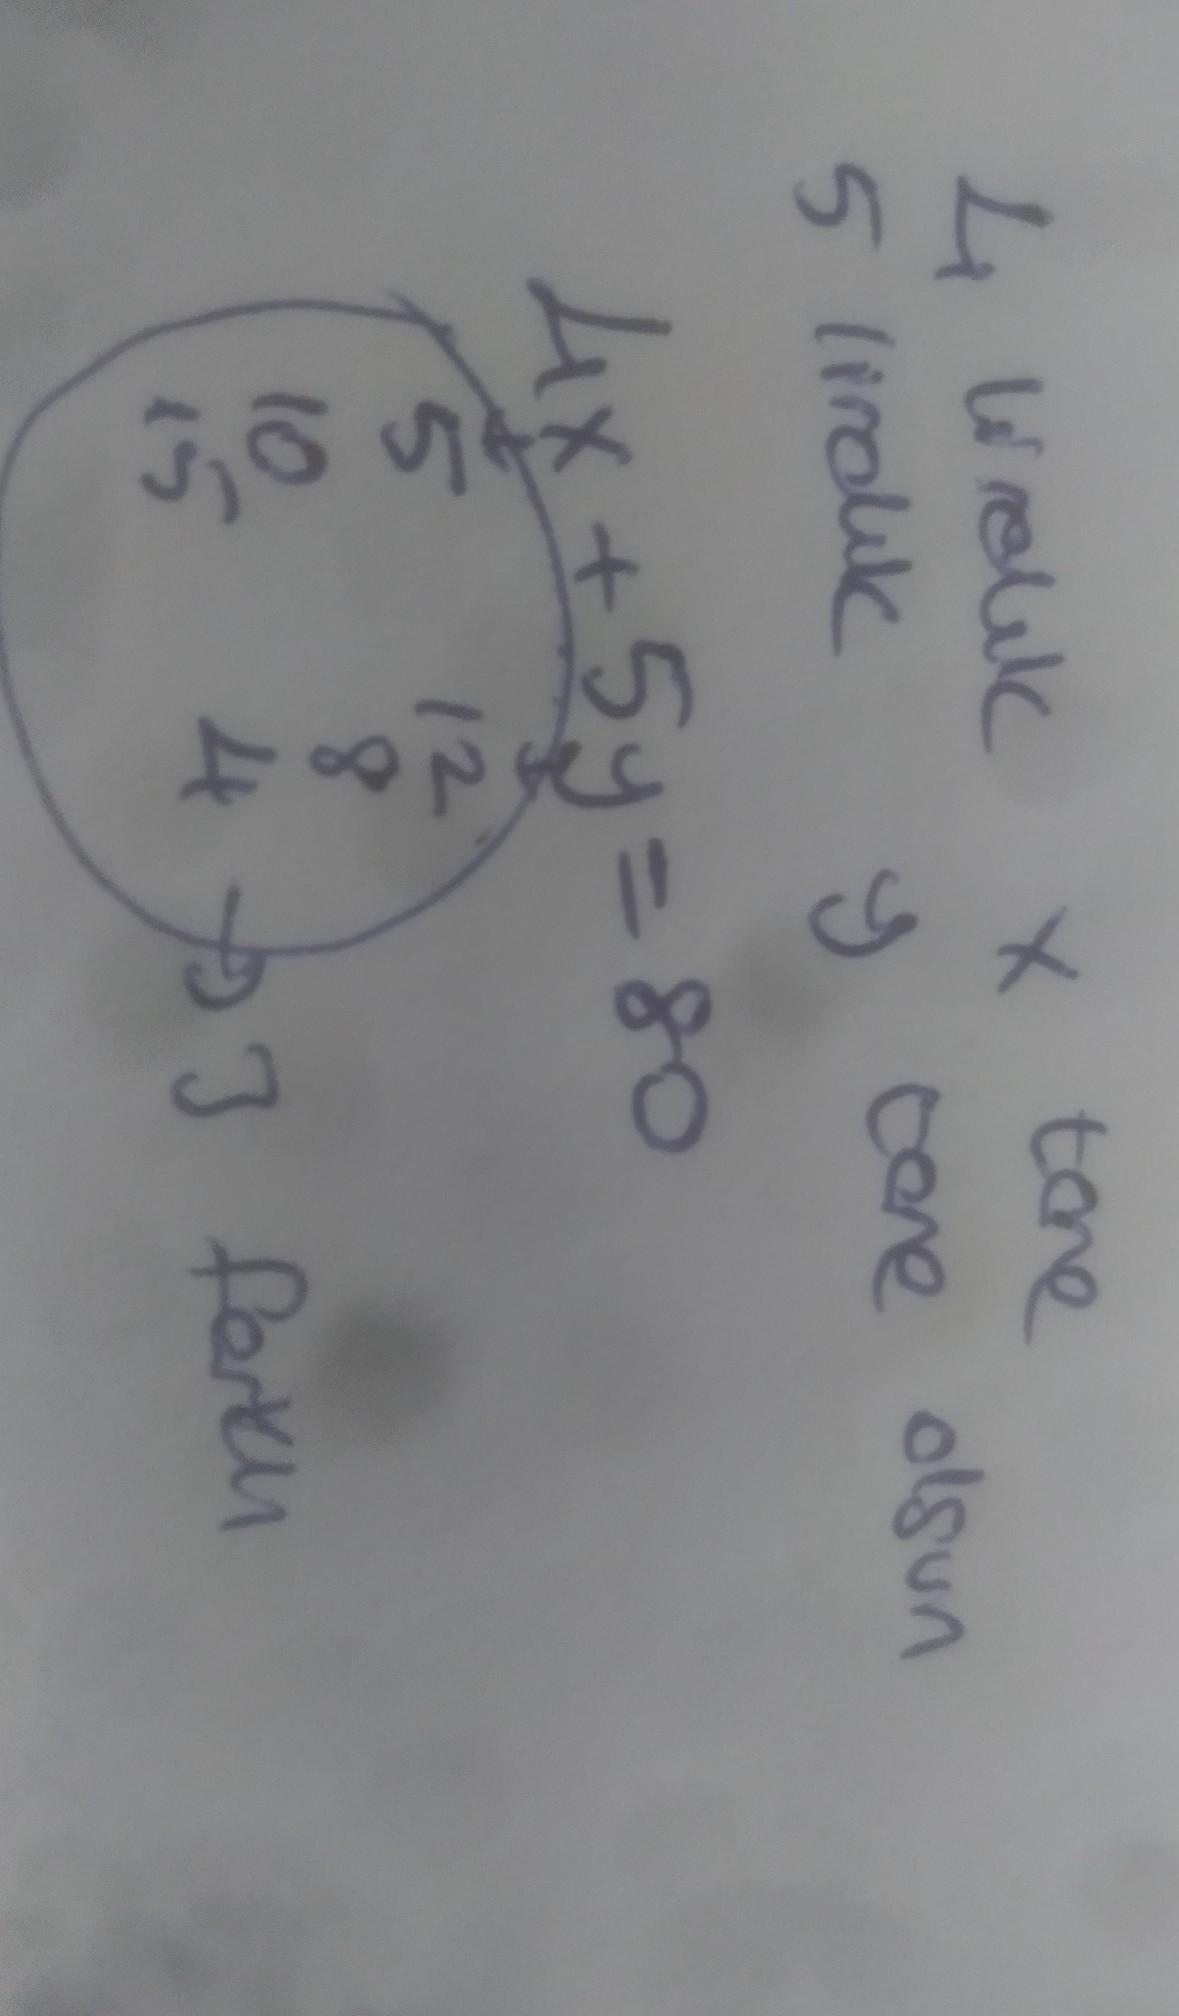 4 liralık x tane
5 liralık y tane olsun
4x + 5y = 80
5 12
10 8
15 4 → 3 farklı